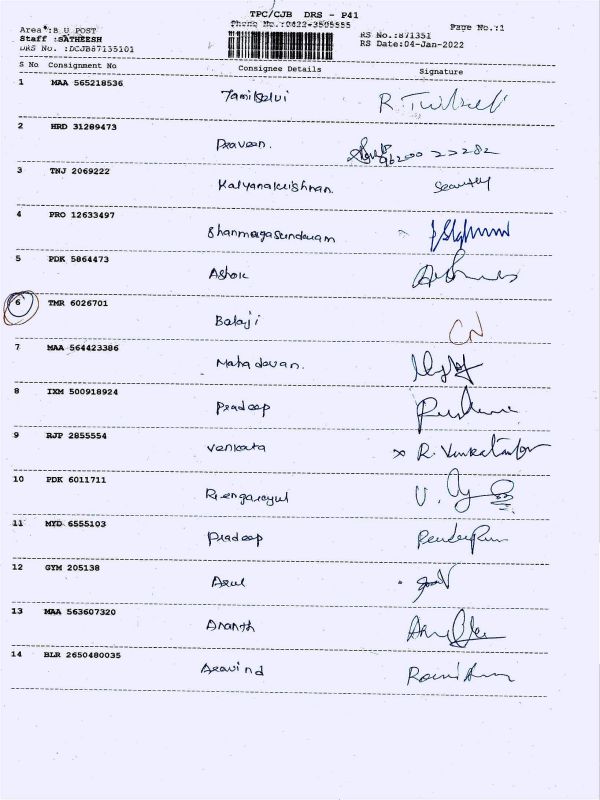 TPC/CJB DRS - P41
Phone No.:0422-3505555
Page No.:1
Area :B U POST
Staff :SATHEESH
DRS No. :DCJB87135101
RS No.:871351
RS Date:04-Jan-2022
S No Consignment No Consignee Details Signature
1 MAA 565218536 Tamilselvi
2 HRD 31289473 Praveen.
3 TNJ 2069222 Kalyanakrishnan. Security
4 PRO 12633497 Shanmugasundaram
5 PDK 5864473 Ashok
6 TMR 6026701 Balaji CN
7 MAA 564423386 Mahadevan.
8 IXM 500918924 Pradeep
9 RJP 2855554 Venkata
10 PDK 6011711
11 MYD 6555103 Pradeep
12 GYM 205138 Arul
13 MAA 563607320 Ananth
14 BLR 2650480035 Aravind